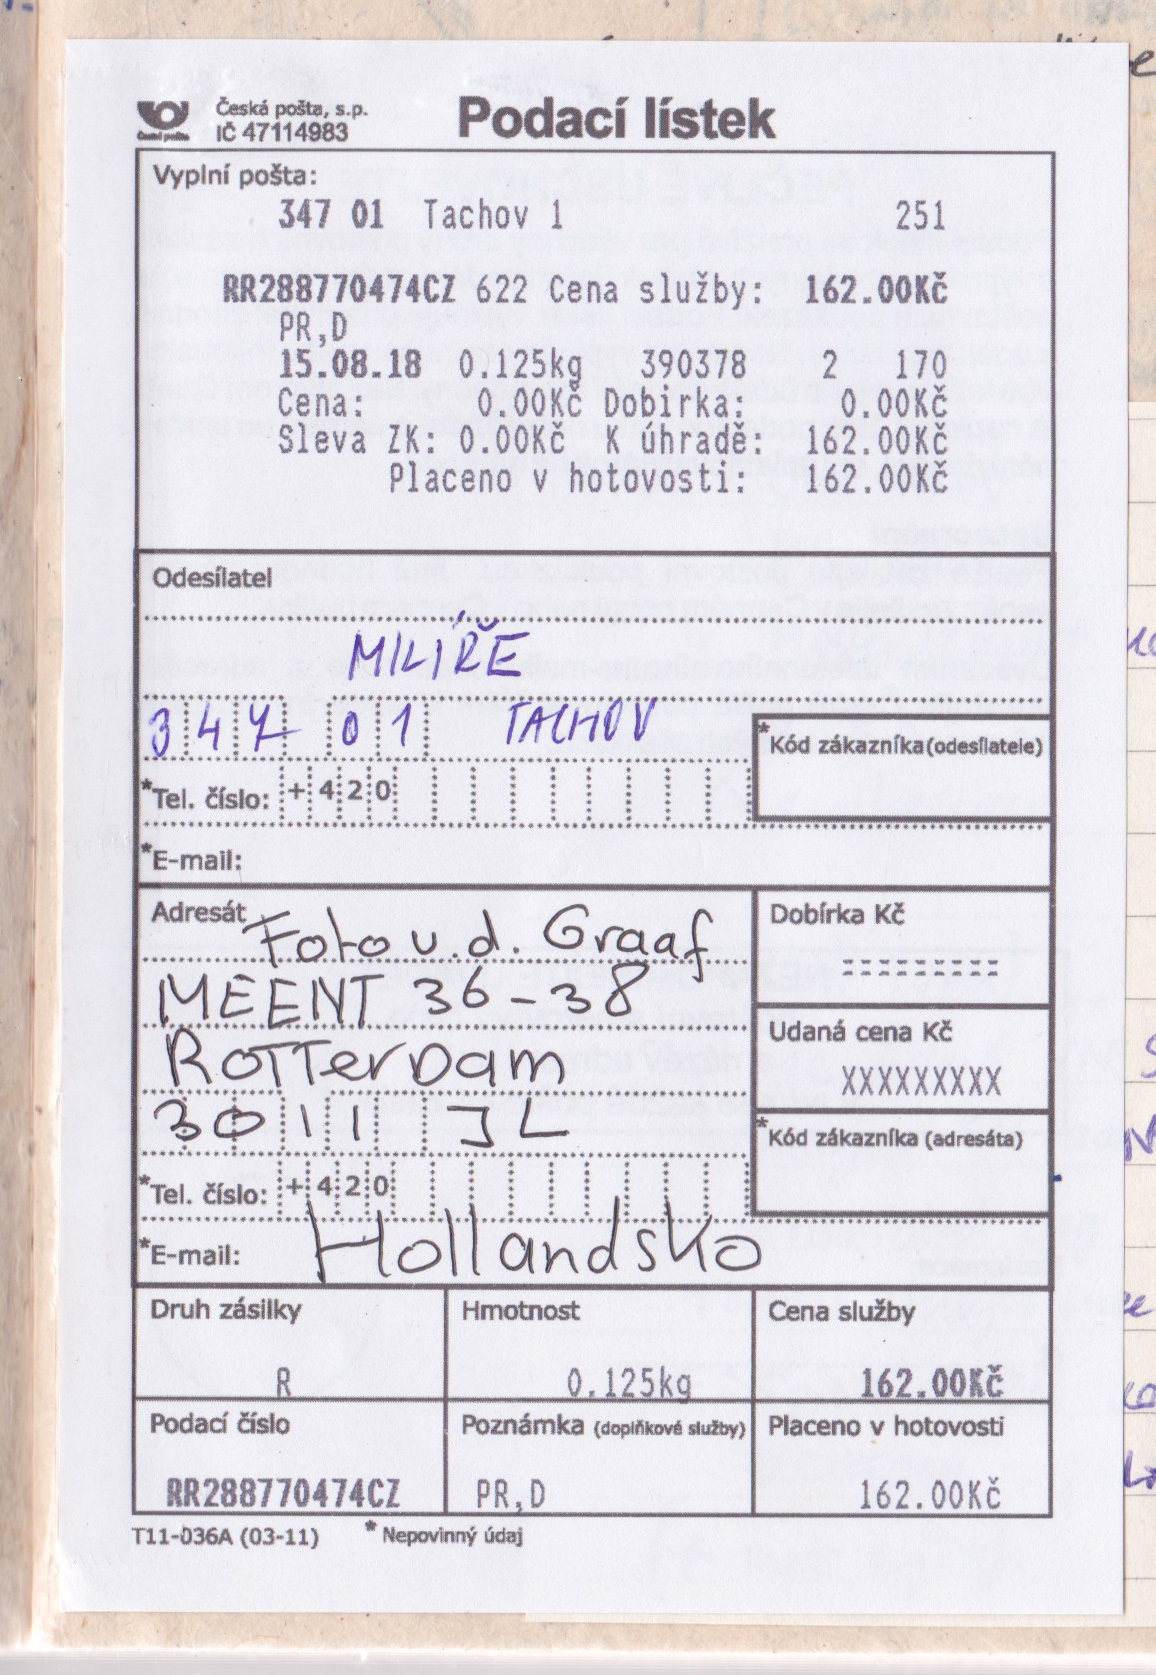 Česká pošta, s.p.
IČ 47114983
Podací lístek
Vyplní pošta:
347 01 Tachov 1 251
RR288770474CZ 622 Cena služby: 162.00Kč
PR,D
15.08.18 0.125kg 390378 2 170
Cena: 0.00Kč Dobírka: 0.00Kč
Sleva ZK: 0.00Kč K úhradě: 162.00Kč
Placeno v hotovosti: 162.00Kč
Odesílatel
MILÍŘE
347 01 TACHOV
*Kód zákazníka (odesílatele)
*Tel. číslo: +420
*E-mail:
Adresát Foto v. d. Graaf
Dobírka Kč
========
MEENT 36-38
Udaná cena Kč
ROTTerDam
XXXXXXXXX
3011 JL
*Kód zákazníka (adresáta)
*Tel. číslo: +420
*E-mail: Hollandsko
Druh zásilky Hmotnost Cena služby
R 0.125kg 162.00Kč
Podací číslo Poznámka (doplňkové služby) Placeno v hotovosti
RR288770474CZ PR,D 162.00Kč
T11-036A (03-11) * Nepovinný údaj